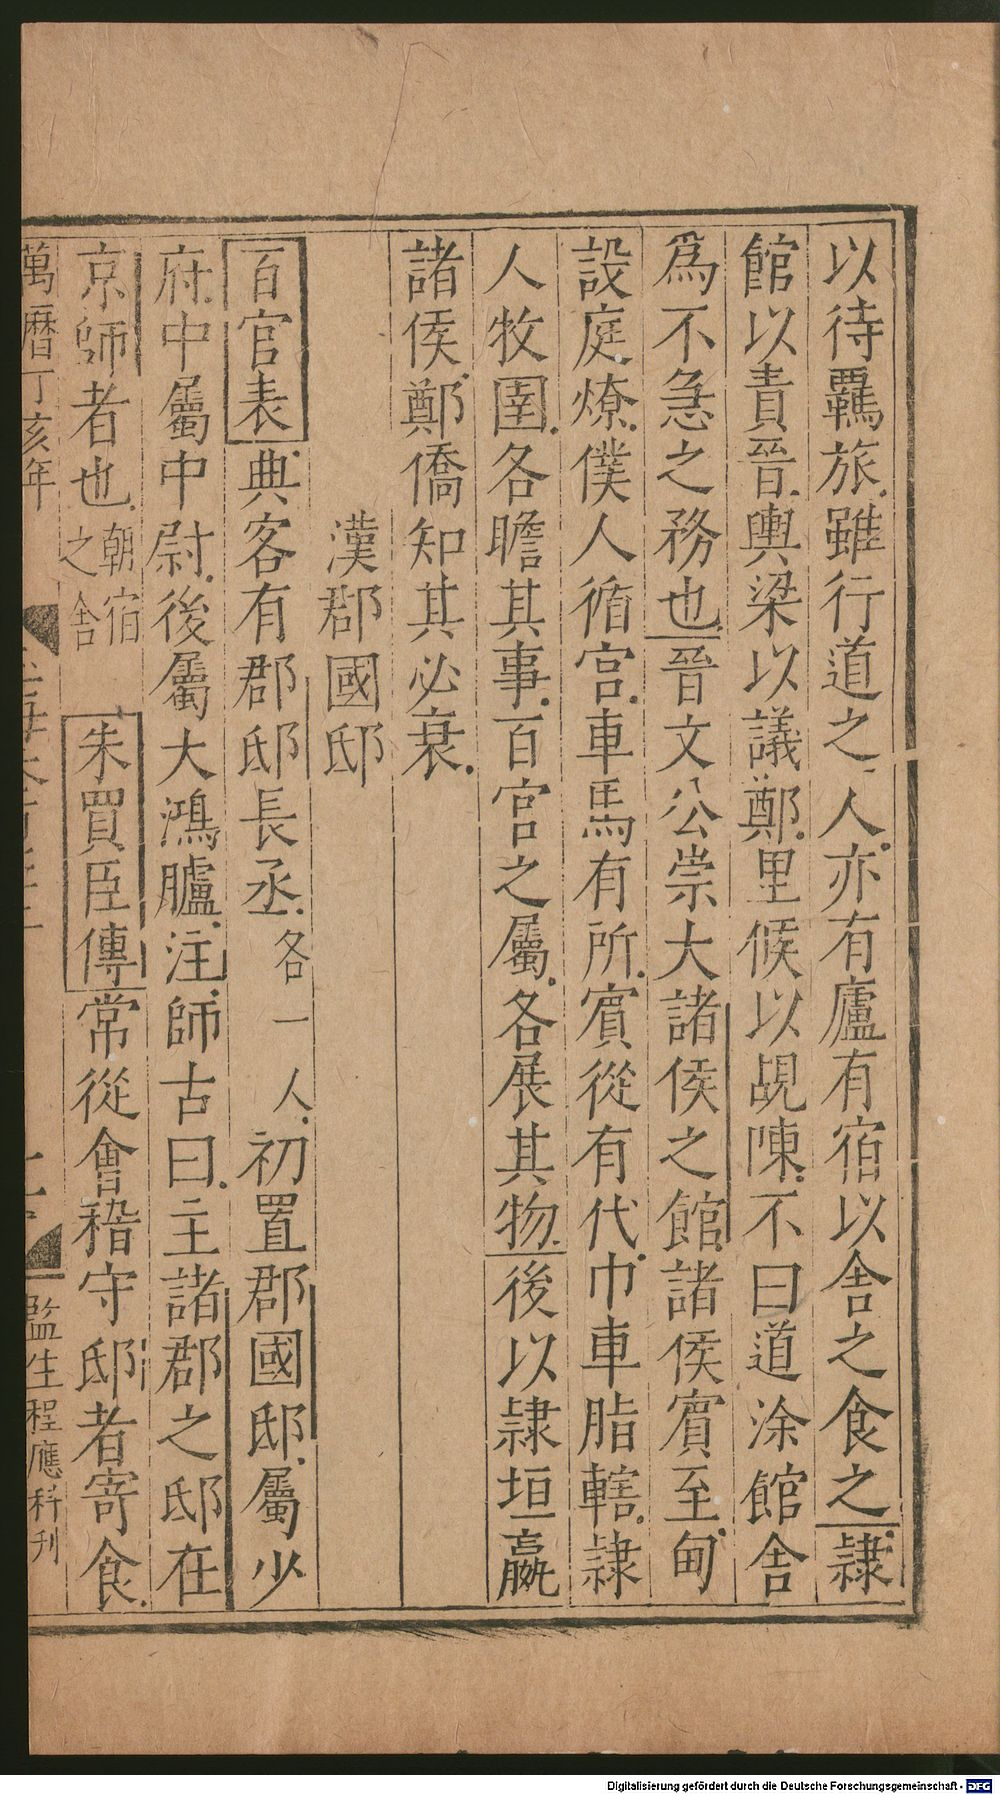 以待羈旅雖行道之人亦有廬有宿以舎之食之隷
館以責晉輿梁以議鄭里候以覘陳不曰道涂館舎
爲不急之務也晉文公崇大諸侯之館諸侯賓至甸
設庭燎僕人循宫車馬有所賓從有代巾車脂轄隷
人牧圉各瞻其事百官之屬各展其物後以隷垣嬴
諸侯鄭僑知其必衰
漢郡國邸
百官表典客有郡邸長丞各一人初置郡國邸屬少
府中屬中尉後屬大鴻臚注師古曰主諸郡之邸在
京師者也朝宿之舎朱買臣傳常從會稽守邸者寄食
萬曆丁亥年
監生程應科刋
Digitalisierung gefördert durch die Deutsche Forschungsgemeinschaft - DFG